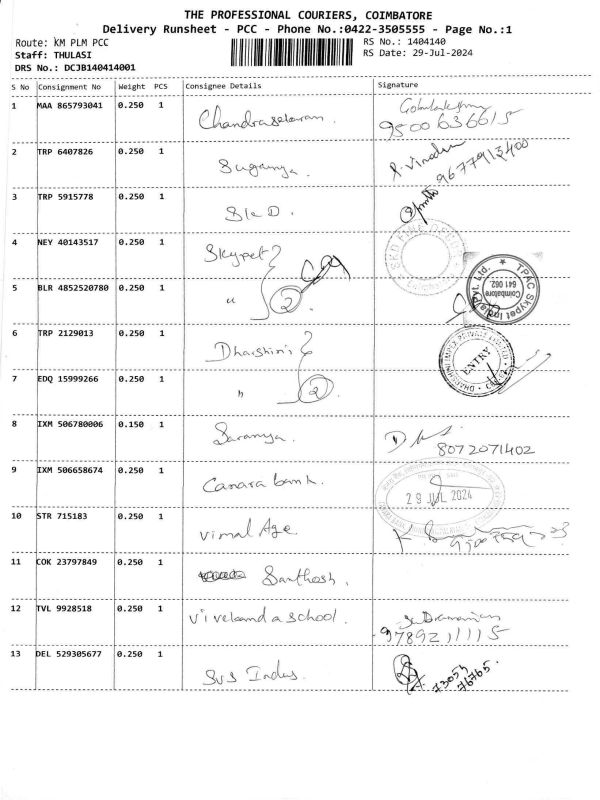 THE PROFESSIONAL COURIERS, COIMBATORE
Delivery Runsheet - PCC - Phone No.:0422-3505555 - Page No.:1
Route: KM PLM PCC
RS No.: 1404140
Staff: THULASI
RS Date: 29-Jul-2024
DRS No.: DCJB140414001
S No Consignment No Weight PCS Consignee Details Signature
1 MAA 865793041 0.250 1 Chandrasekaran.
9500636615
2 TRP 6407826 0.250 1 Suganya.
9677913400
3 TRP 5915778 0.250 1
4 NEY 40143517 0.250 1 Skypet
5 BLR 4852520780 0.250 1 " 2
TPAC Skypet Ltd. Coimbatore 641 062.
6 TRP 2129013 0.250 1 Dharshini
ENTRY
7 EDQ 15999266 0.250 1 " 2
8 IXM 506780006 0.150 1 Saranya.
8072071402
9 IXM 506658674 0.250 1 Canara bank.
29 JUL 2024
10 STR 715183 0.250 1 Vimal Age
11 COK 23797849 0.250 1 Santhosh.
12 TVL 9928518 0.250 1 Vivekanda school.
9789211115
13 DEL 529305677 0.250 1 SVS Indus.
73053
76765.